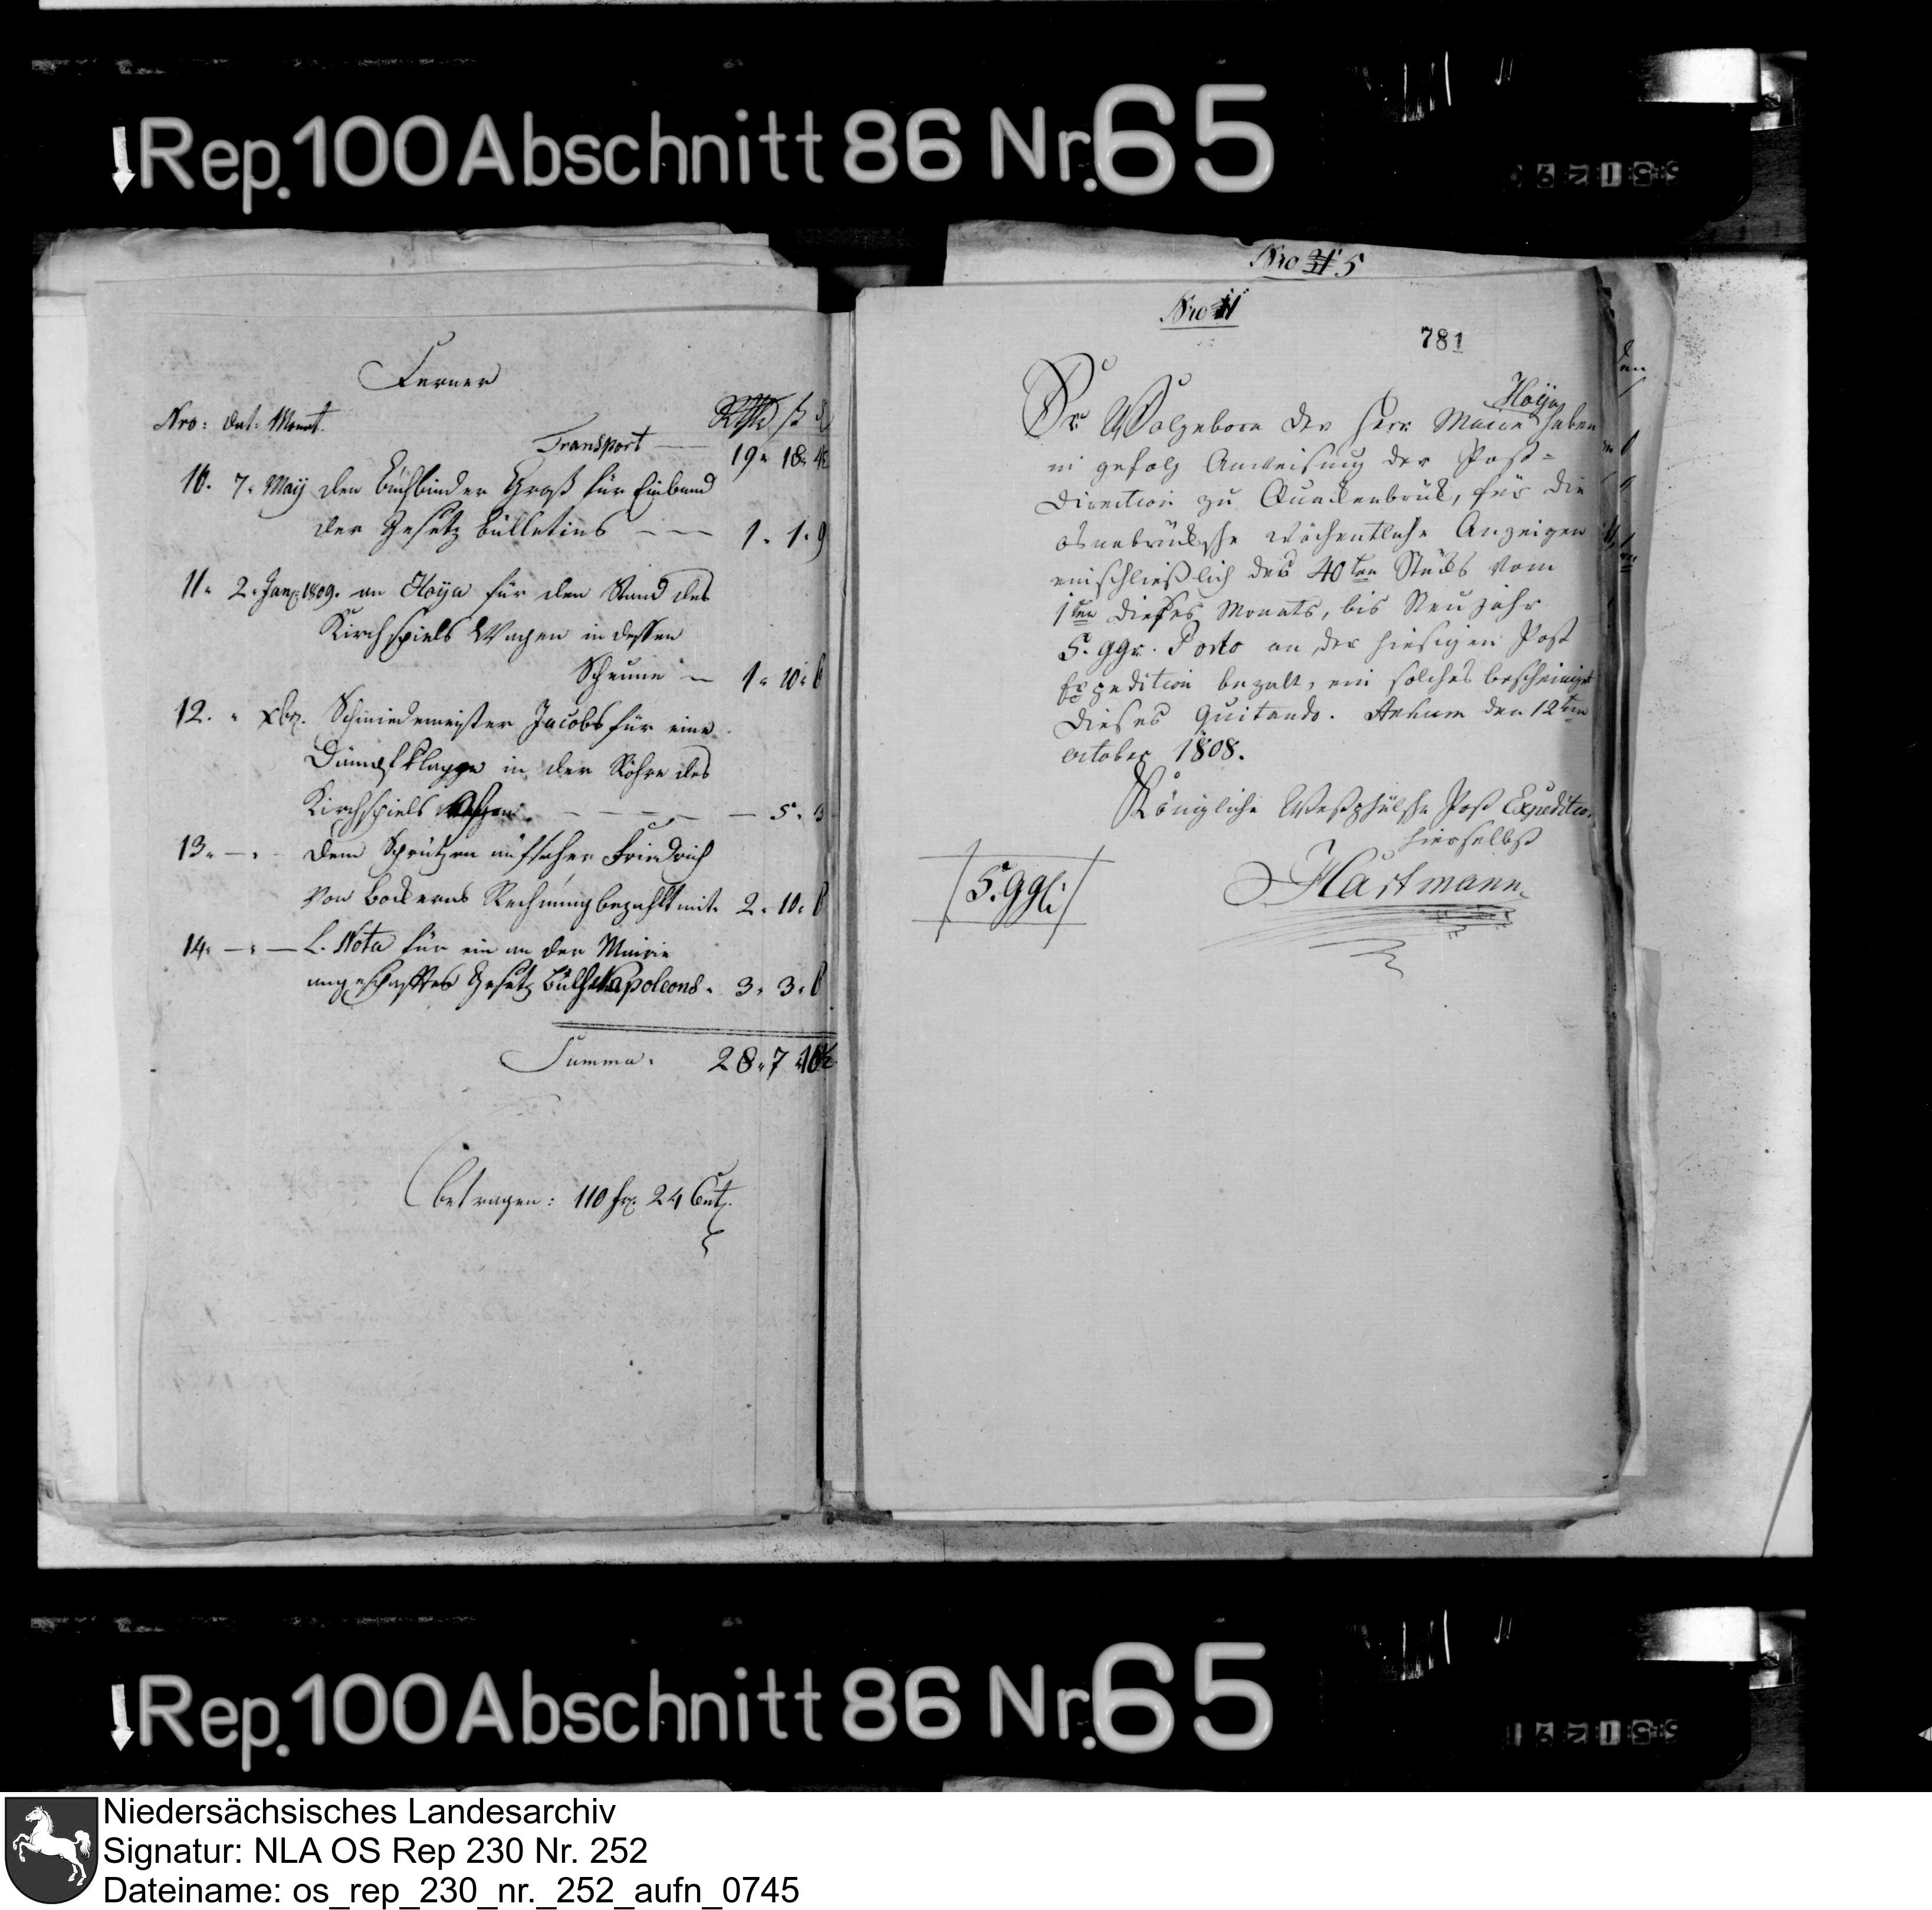 Rep. 100 Abschnitt 86 Nr. 65
Ferner
Nro: Dat: Monat. Rthlr ß
Transport — 19 " 18 " 4½
10. 7. May den buchbinder Groß für Einband
der Gesetz bulletins — — 1 " 1 " 9
11. 2. Jan: 1809. an Hoya für den Stand des
Kirchspiels Wagen in dessen
Scheune — 1 " 10 " 6
12. " Xbr. Schmiedemeister Jacobs für eine
Dämpfklappe in der Röhre des
Kirchspiels — — — — 5 " 3
13. — " Dem Sprützen aufseher Friedrich
von Rechnung bezahlt mit 2 " 10 " 6
14. — " — L. Nota für ein an der Mairie
angeschafftes Gesetz Napoleons " 3 " 3 " 6
Summa. 28 " 7 " 10½
betragen: 110 fr. 24 Cent.
Nro 5
Nro
781
Hoya
Sr Wolgeborn der Herr Maire haben
in gefolg Anweisung der Post=
Direction zu Quackenbrück, für die
osnabrücksche wöchentliche Anzeigen
einschließlich des 40ten Stücks vom
1ten dieses Monats, bis Neujahr
5. ggr. Porto an der hiesigen Post
Expedition bezalt, ein solches bescheiniget
dieses quitando. Ankum den 12ten
october 1808.
Königliche Westphälsche Post Expedition
hierselbst
Hartmann
5. ggl:
Rep. 100 Abschnitt 86 Nr. 65
Niedersächsisches Landesarchiv
Signatur: NLA OS Rep 230 Nr. 252
Dateiname: os_rep_230_nr._252_aufn_0745